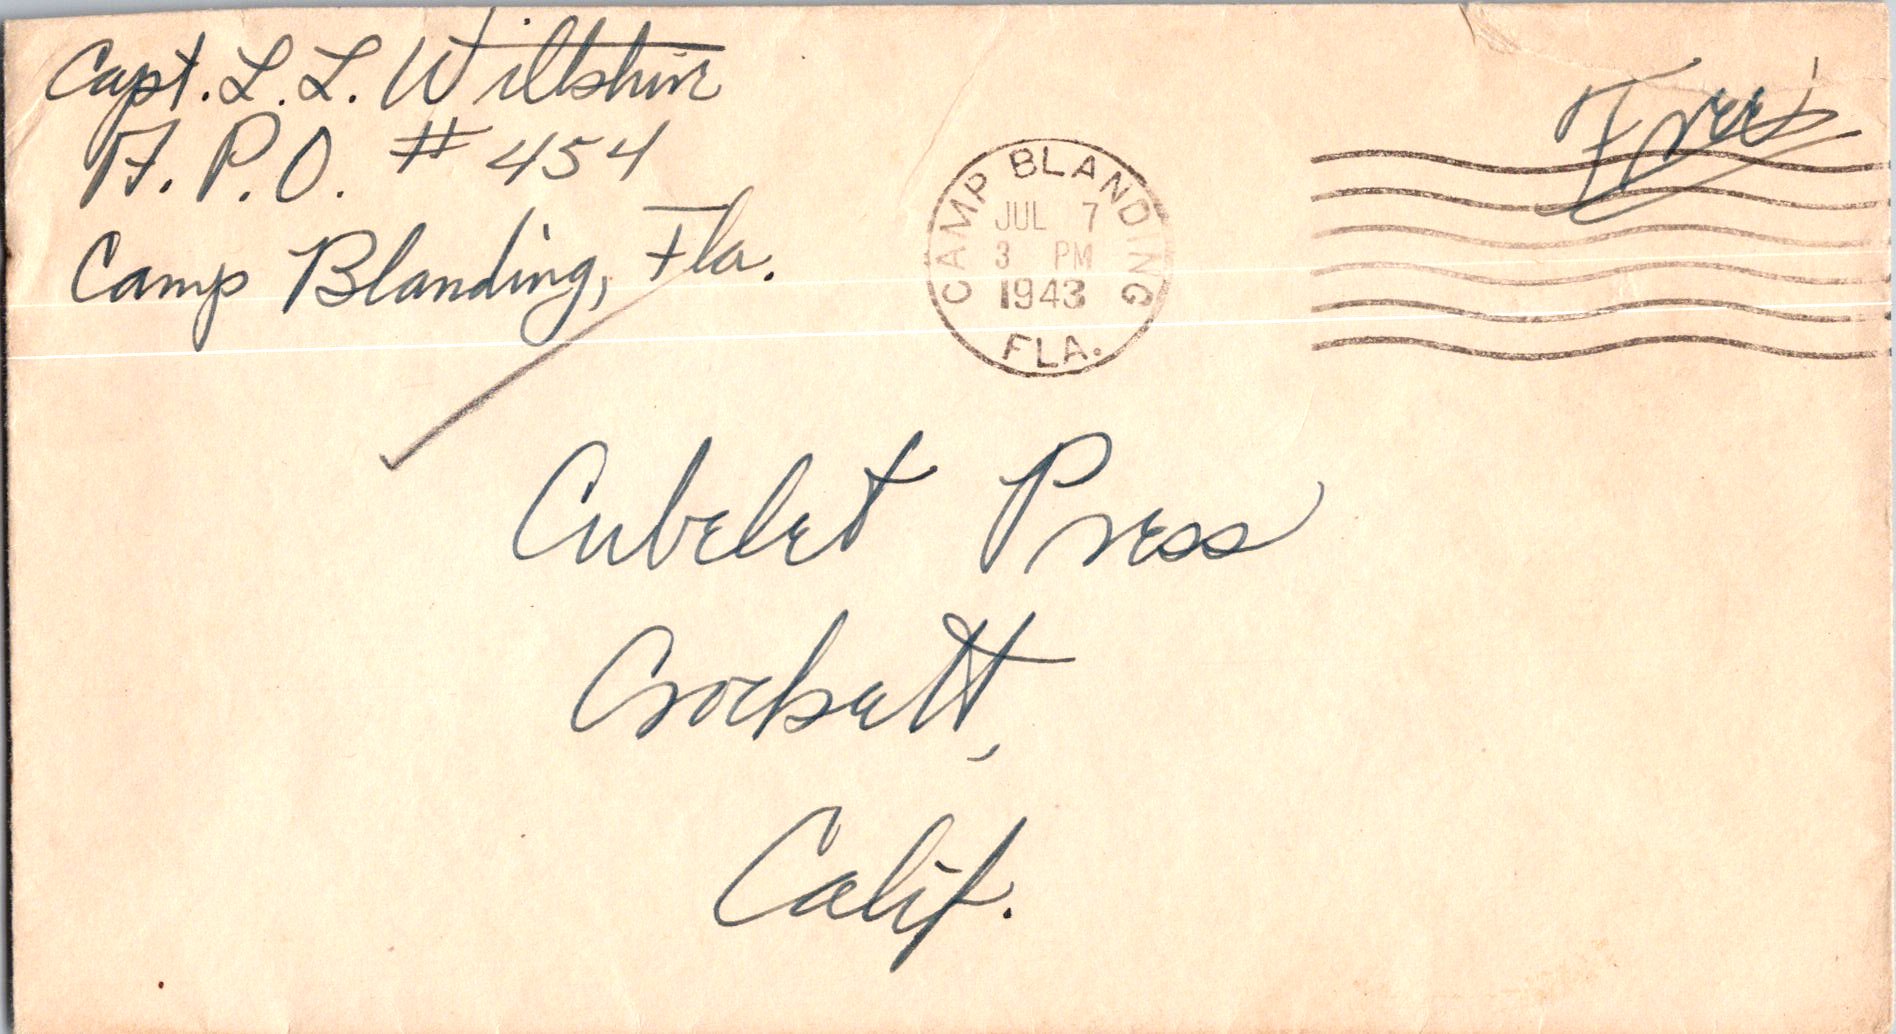 Capt. L. L. Wiltshire
A. P. O. # 454
Camp Blanding, Fla.
Free
CAMP BLANDING
JUL 7
3 PM
1943
FLA.
Cubelet Press
Crockett,
Calif.